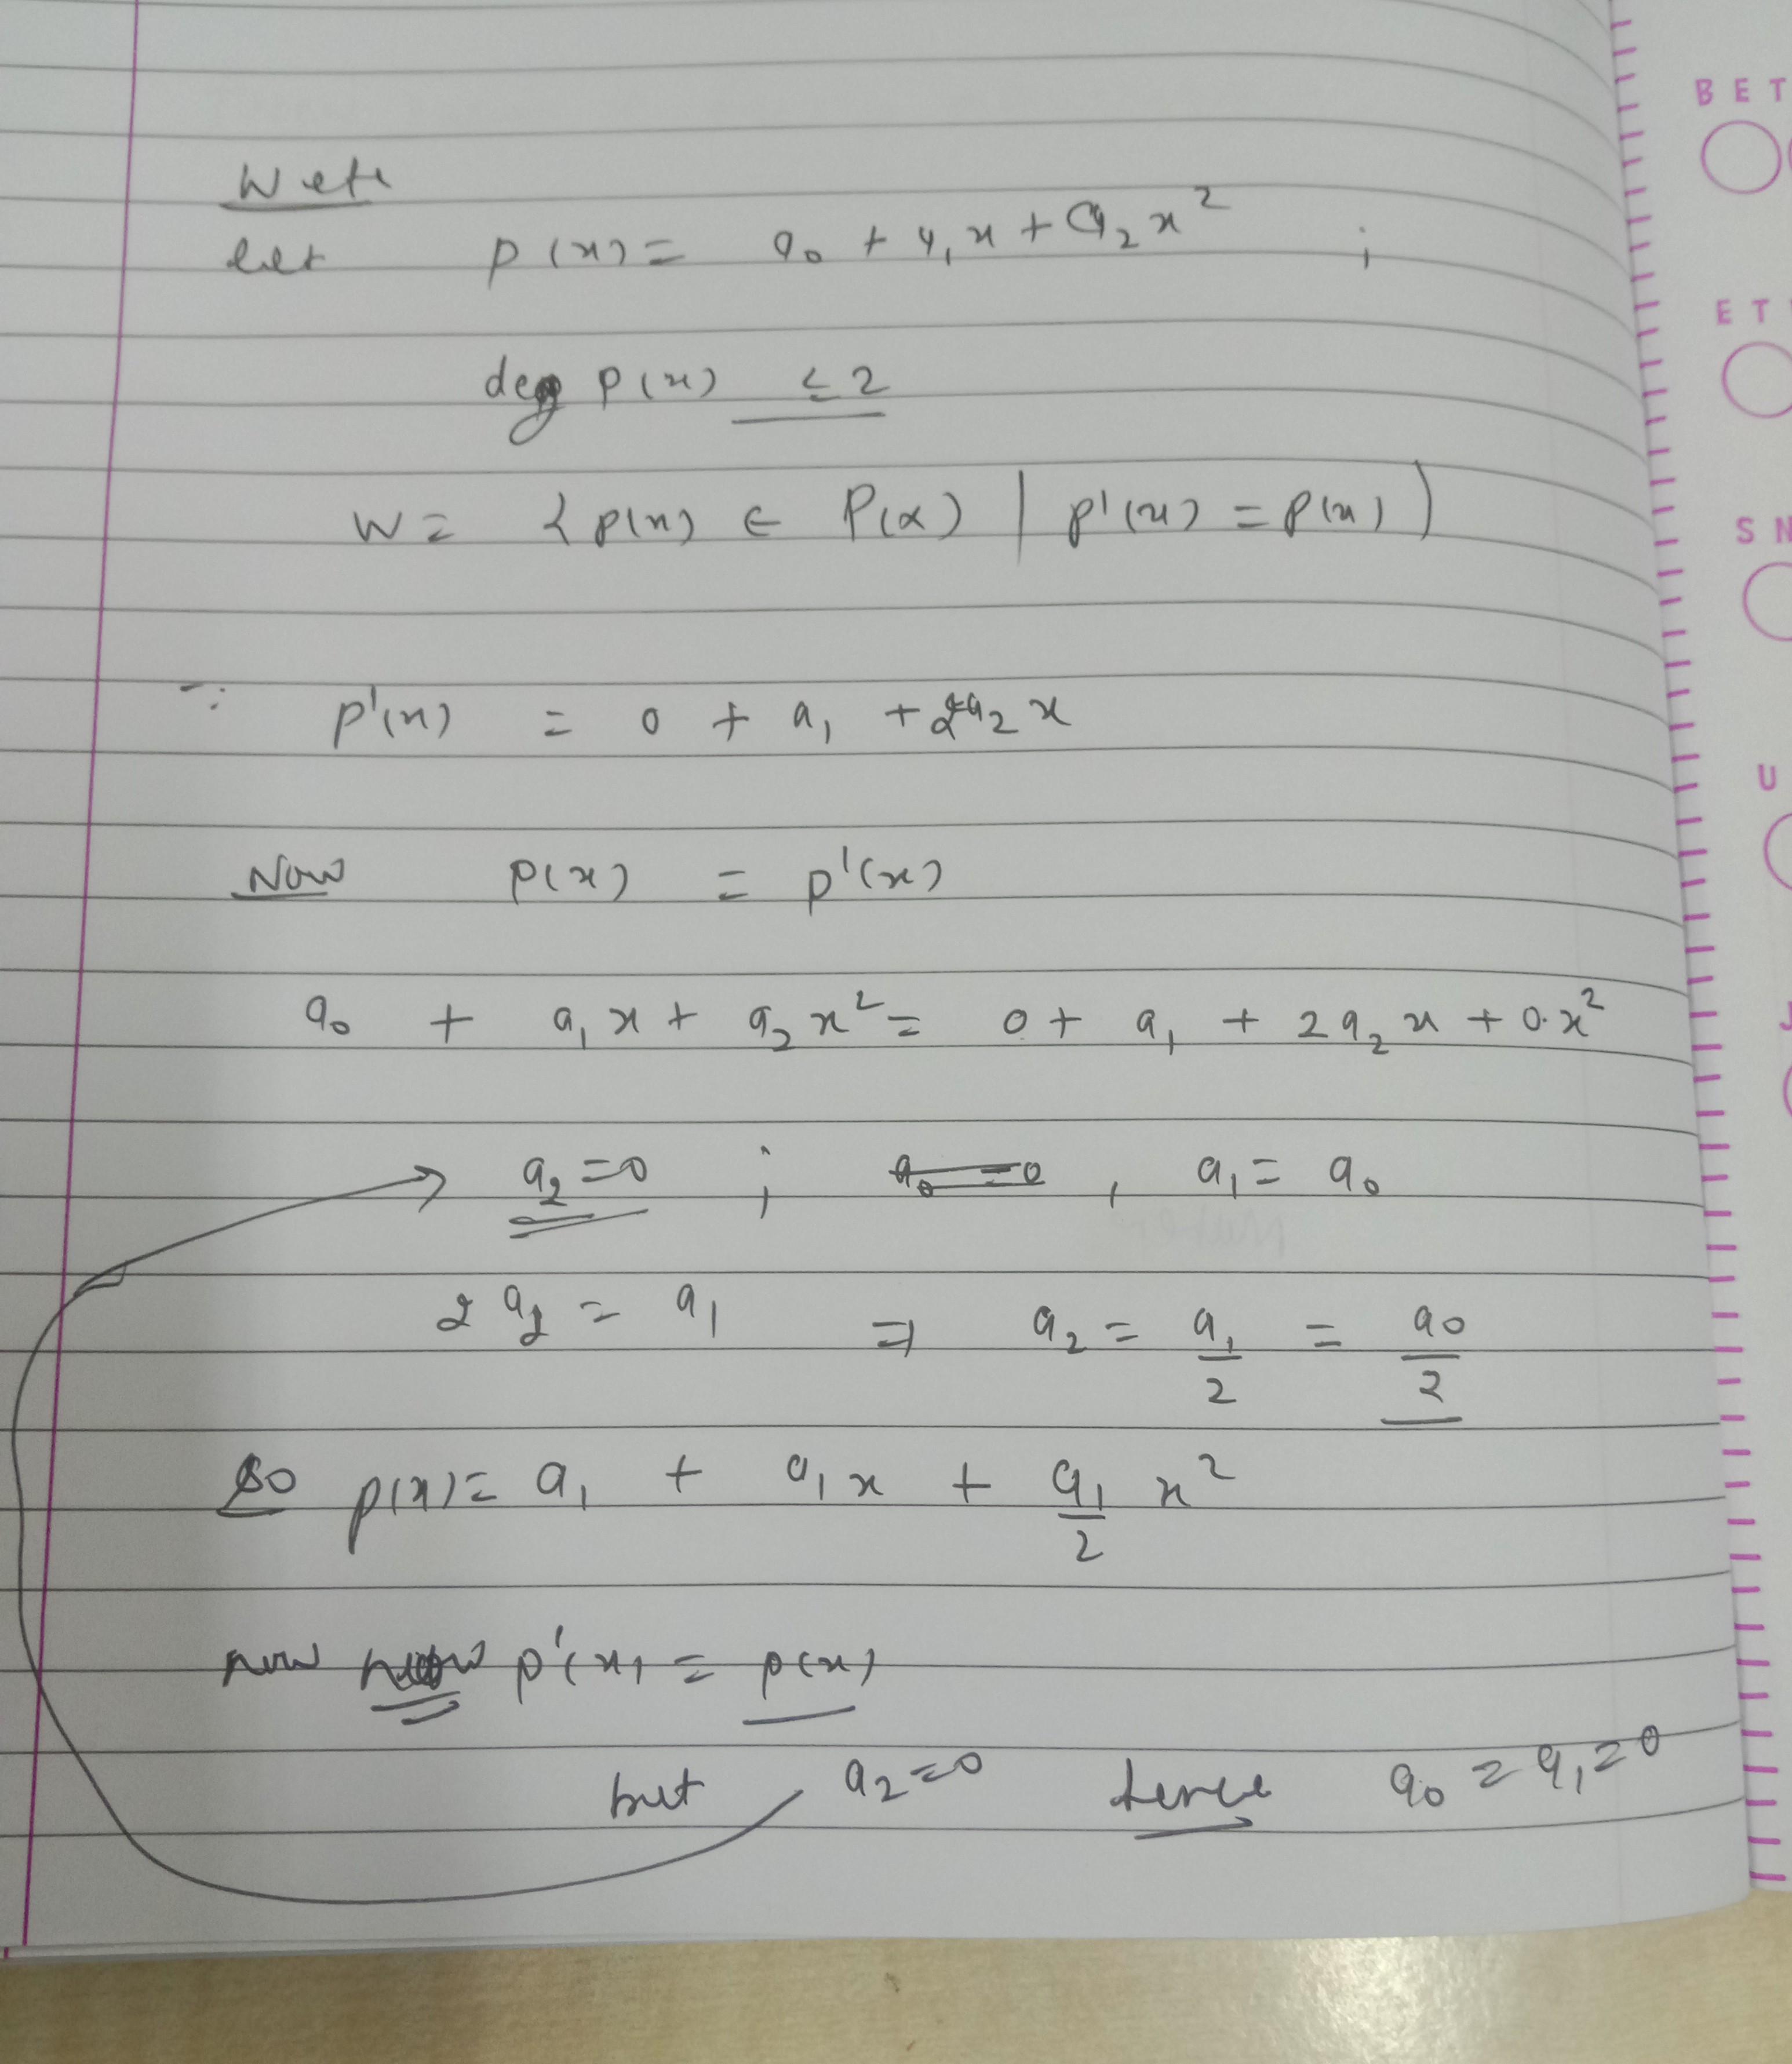 let p(x) = a₀ + a₁x + a₂x² ;
deg p(x) ≤ 2
W = { p(x) ∈ P(x) | p'(x) = p(x) )
∵ p'(x) = 0 + a₁ + 2a₂x
Now p(x) = p'(x)
a₀ + a₁x + a₂x² = 0 + a₁ + 2a₂x + 0·x²
a₂ = 0 ; a₀ = 0 , a₁ = a₀
2a₂ = a₁ ⇒ a₂ = a₁/2 = a₀/2
So p(x) = a₁ + a₁x + a₁/2 x²
now now p'(x) = p(x)
but a₂ = 0 hence a₀ = a₁ = 0
BET
ET
SN
U
J